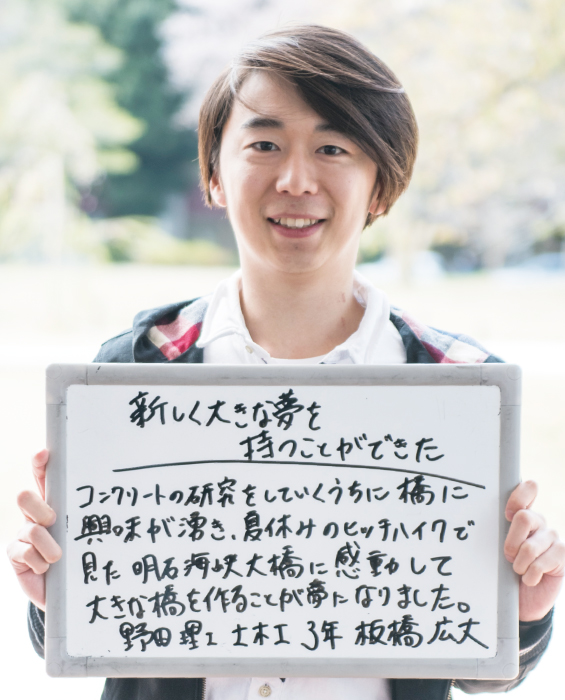 新しく大きな夢を
持つことができた
コンクリートの研究をしていくうちに橋に
興味が湧き、夏休みのヒッチハイクで
見た明石海峡大橋に感動して
大きな橋を作ることが夢になりました。
野田 理工 土木工 3年 板橋 広大